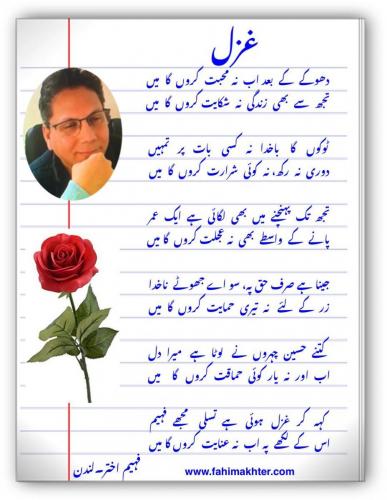 غزل
دھوکے کے بعد اب نہ محبت کروں گا میں
تجھ سے بھی زندگی نہ شکایت کروں گا میں
ٹوکوں گا باخدا نہ کسی بات پر تمہیں
دوری نہ رکھ، نہ کوئی شرارت کروں گا میں
تجھ تک پہنچنے میں بھی لگائی ہے ایک عمر
پانے کے واسطے بھی نہ عجلت کروں گا میں
جینا ہے صرف حق پہ، سو اے جھوٹے ناخدا
زر کے لئے نہ تیری حمایت کروں گا میں
کتنے حسین چہروں نے لوٹا ہے میرا دل
اب اور نہ یار کوئی حماقت کروں گا میں
کہہ کر غزل ہوئی ہے تسلی مجھے فہیم
اس کے لکھے پہ اب نہ عنایت کروں گا میں
فہیم اختر۔لندن
www.fahimakhter.com